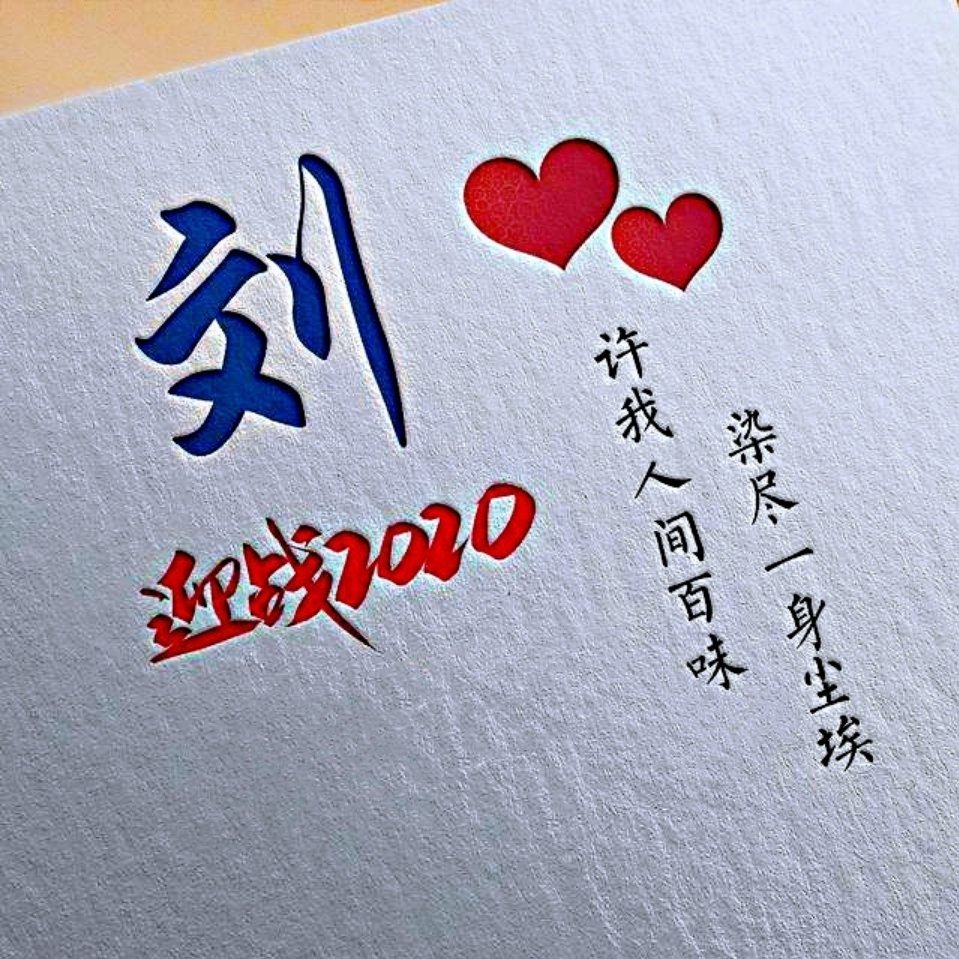 刘
迎战2020
许我人间百味
染尽一身尘埃